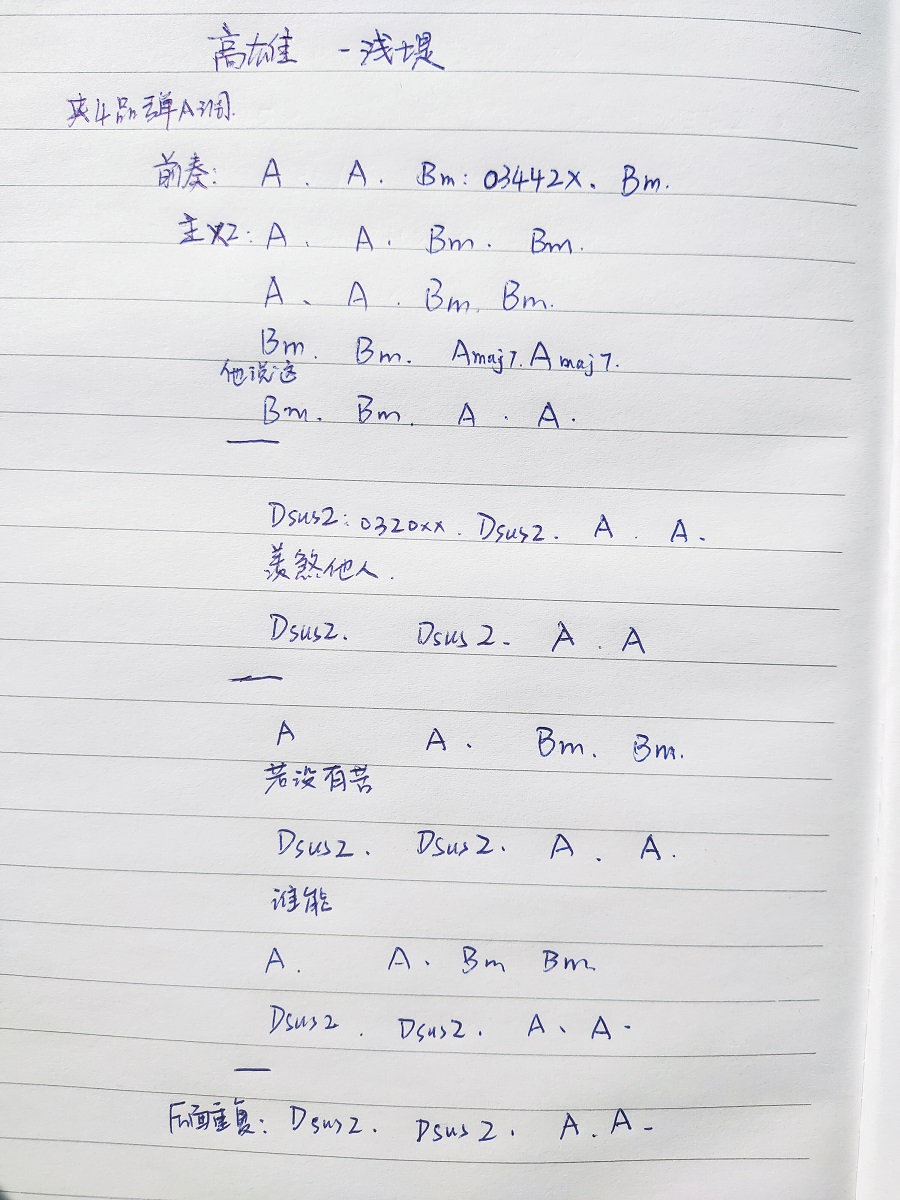 高雄 -浅堤
夹4品弹A调.
前奏: A . A . Bm: 03442X. Bm.
主歌: A . A . Bm . Bm.
A 、 A . Bm. Bm.
Bm. Bm. Amaj7. Amaj7.
他说这
Bm. Bm. A . A .
Dsus2: 0320xx. Dsus2. A . A .
羡煞他人.
Dsus2. Dsus2 - A . A
A A . Bm. Bm.
若没有苦
Dsus2. Dsus2. A . A.
谁能
A. A . Bm Bm
Dsus2 . Dsus2. A 、 A .
后面重复: Dsus2. Dsus2. A . A -